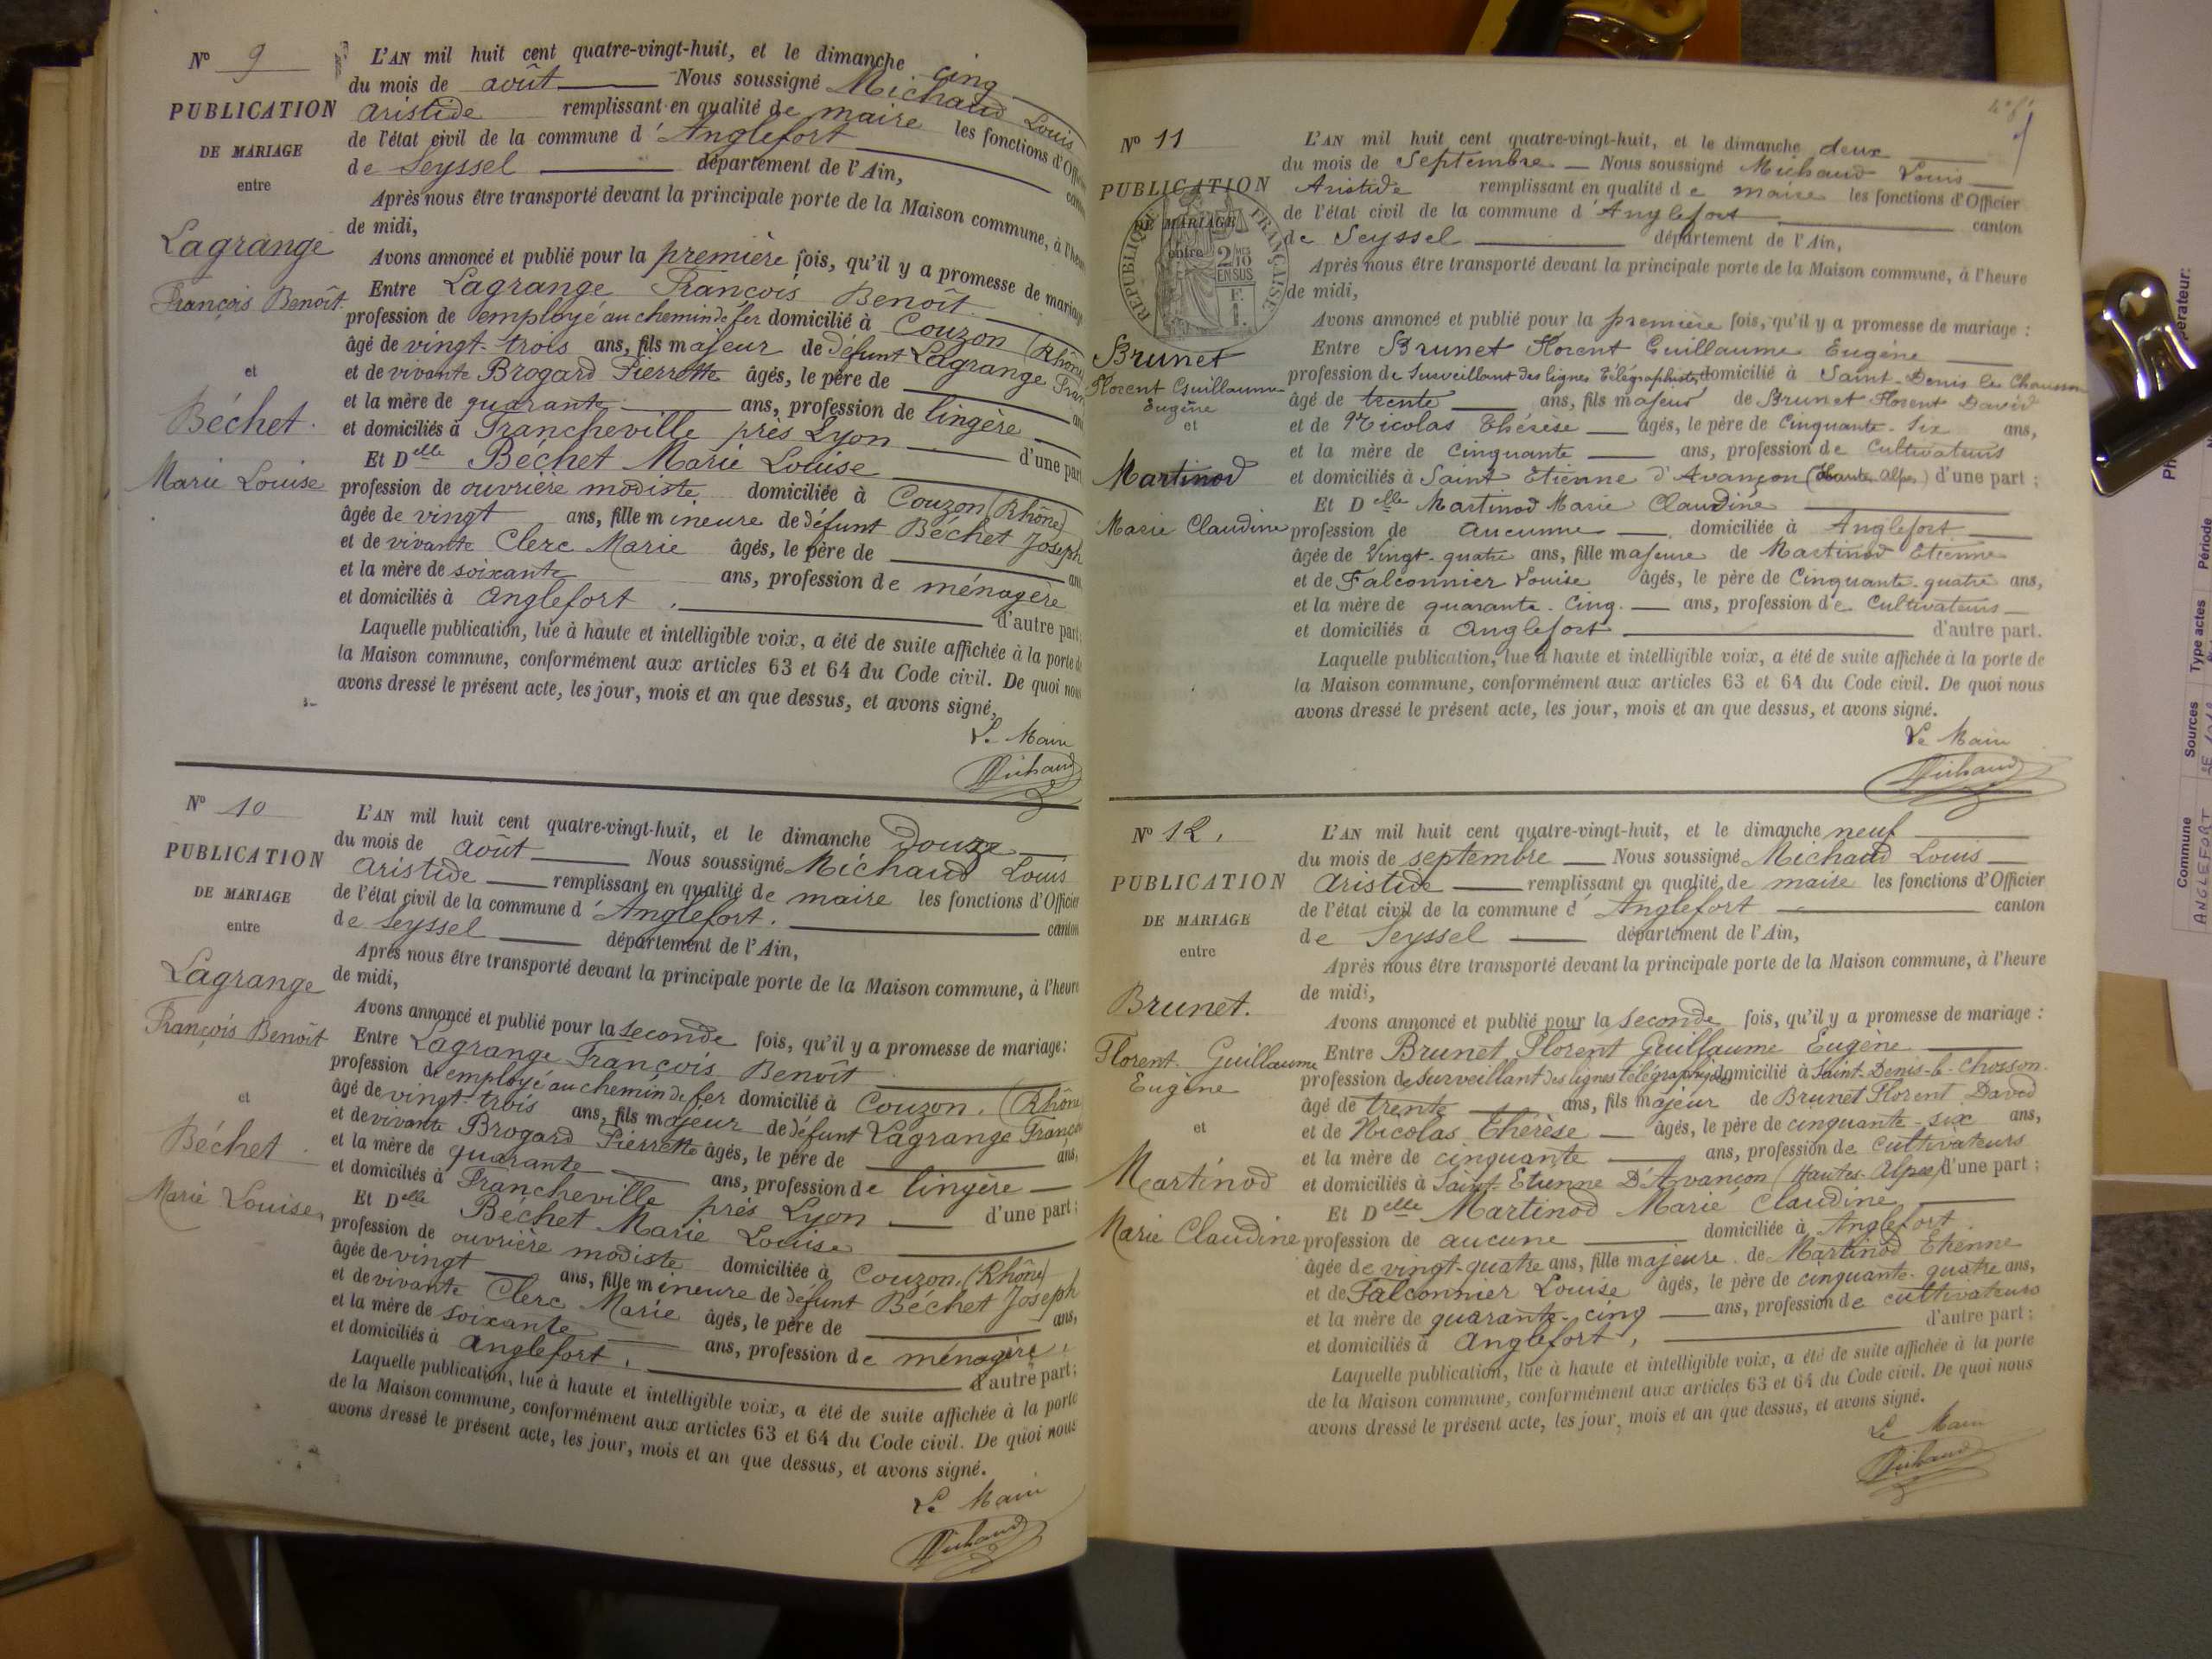 N° 9
PUBLICATION
DE MARIAGE
entre
Lagrange
François Benoît
et
Béchet
Marie Louise
L'AN mil huit cent quatre-vingt-huit, et le dimanche cinq
du mois de août Nous soussigné Michaud Louis
aristide remplissant en qualité de maire les fonctions d'Offi
de l'état civil de la commune d'Anglefort
de Seyssel département de l'Ain,
Après nous être transporté devant la principale porte de la Maison commune, à l'heu
de midi,
Avons annoncé et publié pour la première fois, qu'il y a promesse de mariag
Entre Lagrange François Benoît
profession de employé au chemin de fer domicilié à Couzon (Rhône
âgé de vingt-trois ans, fils majeur de défunt Lagrange Fran
et de vivante Brogard Pierrette âgés, le père de
et la mère de quarante ans, profession de lingère
et domiciliés à Francheville près Lyon d'une part
Et Delle Béchet Marie Louise
profession de ouvrière modiste domiciliée à Couzon (Rhône)
âgée de vingt ans, fille mineure de défunt Béchet Joseph
et de vivante Clerc Marie âgés, le père de ans
et la mère de soixante ans, profession de ménagère
et domiciliés à Anglefort d'autre part;
Laquelle publication, lue à haute et intelligible voix, a été de suite affichée à la porte de
la Maison commune, conformément aux articles 63 et 64 du Code civil. De quoi nous
avons dressé le présent acte, les jour, mois et an que dessus, et avons signé,
Le Maire
Michaud
N° 10
PUBLICATION
DE MARIAGE
entre
Lagrange
François Benoît
et
Béchet
Marie Louise
L'AN mil huit cent quatre-vingt-huit, et le dimanche Douze
du mois de août Nous soussigné Michaud Louis
aristide remplissant en qualité de maire les fonctions d'Officier
de l'état civil de la commune d'Anglefort. canton
de Seyssel département de l'Ain,
Après nous être transporté devant la principale porte de la Maison commune, à l'heure
de midi,
Avons annoncé et publié pour la seconde fois, qu'il y a promesse de mariage:
Entre Lagrange François Benoît
profession de employé au chemin de fer domicilié à Couzon. (Rhône
âgé de vingt-trois ans, fils majeur de défunt Lagrange Franço
et de vivante Brogard Pierrette âgés, le père de ans,
et la mère de quarante ans, profession de lingère
et domiciliés à Francheville près Lyon d'une part;
Et Delle Béchet Marie Louise
profession de ouvrière modiste domiciliée à Couzon. (Rhône)
âgée de vingt ans, fille mineure de défunt Béchet Joseph
et de vivante Clerc Marie âgés, le père de ans,
et la mère de soixante ans, profession de ménagère,
et domiciliés à Anglefort. d'autre part;
Laquelle publication, lue à haute et intelligible voix, a été de suite affichée à la porte
de la Maison commune, conformément aux articles 63 et 64 du Code civil. De quoi nous
avons dressé le présent acte, les jour, mois et an que dessus, et avons signé.
Le Maire
Michaud
N° 11
PUBLICATION
DE MARIAGE
entre
REPUBLIQUE FRANÇAISE
2/10 EN SUS
Brunet
Florent Guillaume
Eugène
et
Martinod
Marie Claudine
L'AN mil huit cent quatre-vingt-huit, et le dimanche deux
du mois de Septembre Nous soussigné Michaud Louis
Aristide remplissant en qualité de maire les fonctions d'Officier
de l'état civil de la commune d'Anglefort canton
de Seyssel département de l'Ain,
Après nous être transporté devant la principale porte de la Maison commune, à l'heure
de midi,
Avons annoncé et publié pour la première fois, qu'il y a promesse de mariage :
Entre Brunet Florent Guillaume Eugène
profession de Surveillant des lignes télégraphiques domicilié à Saint-Denis le Chausson
âgé de trente ans, fils majeur de Brunet Florent David
et de Nicolas Thérèse âgés, le père de Cinquante-six ans,
et la mère de Cinquante ans, profession de Cultivateurs
et domiciliés à Saint Etienne d'Avançon (Hautes Alpes) d'une part ;
Et Delle Martinod Marie Claudine
profession de aucune domiciliée à Anglefort
âgée de Vingt-quatre ans, fille majeure de Martinod Etienne
et de Falconnier Louise âgés, le père de Cinquante-quatre ans,
et la mère de quarante-cinq. ans, profession de Cultivateurs
et domiciliés à Anglefort d'autre part.
Laquelle publication, lue à haute et intelligible voix, a été de suite affichée à la porte de
la Maison commune, conformément aux articles 63 et 64 du Code civil. De quoi nous
avons dressé le présent acte, les jour, mois et an que dessus, et avons signé.
Le Maire
Michaud
N° 12.
PUBLICATION
DE MARIAGE
entre
Brunet.
Florent Guillaume
Eugène
et
Martinod
Marie Claudine
L'AN mil huit cent quatre-vingt-huit, et le dimanche neuf
du mois de septembre Nous soussigné Michaud Louis
Aristide remplissant en qualité de maire les fonctions d'Officier
de l'état civil de la commune d'Anglefort canton
de Seyssel département de l'Ain,
Après nous être transporté devant la principale porte de la Maison commune, à l'heure
de midi,
Avons annoncé et publié pour la seconde fois, qu'il y a promesse de mariage :
Entre Brunet Florent Guillaume Eugène
profession de surveillant des lignes télégraphiques domicilié à Saint-Denis-le-Chosson.
âgé de trente ans, fils majeur de Brunet Florent David
et de Nicolas Thérèse âgés, le père de cinquante-six ans,
et la mère de cinquante ans, profession de cultivateurs
et domiciliés à Saint-Etienne D'Avançon (Hautes-Alpes) d'une part ;
Et Delle Martinod Marie Claudine
profession de aucune domiciliée à Anglefort.
âgée de vingt-quatre ans, fille majeure de Martinod Etienne
et de Falconnier Louise âgés, le père de cinquante-quatre ans,
et la mère de quarante-cinq ans, profession de cultivateurs
et domiciliés à Anglefort, d'autre part;
Laquelle publication, lue à haute et intelligible voix, a été de suite affichée à la porte
de la Maison commune, conformément aux articles 63 et 64 du Code civil. De quoi nous
avons dressé le présent acte, les jour, mois et an que dessus, et avons signé.
Le Maire
Michaud
Commune
Sources
Type actes
Période
ANGLEFORT